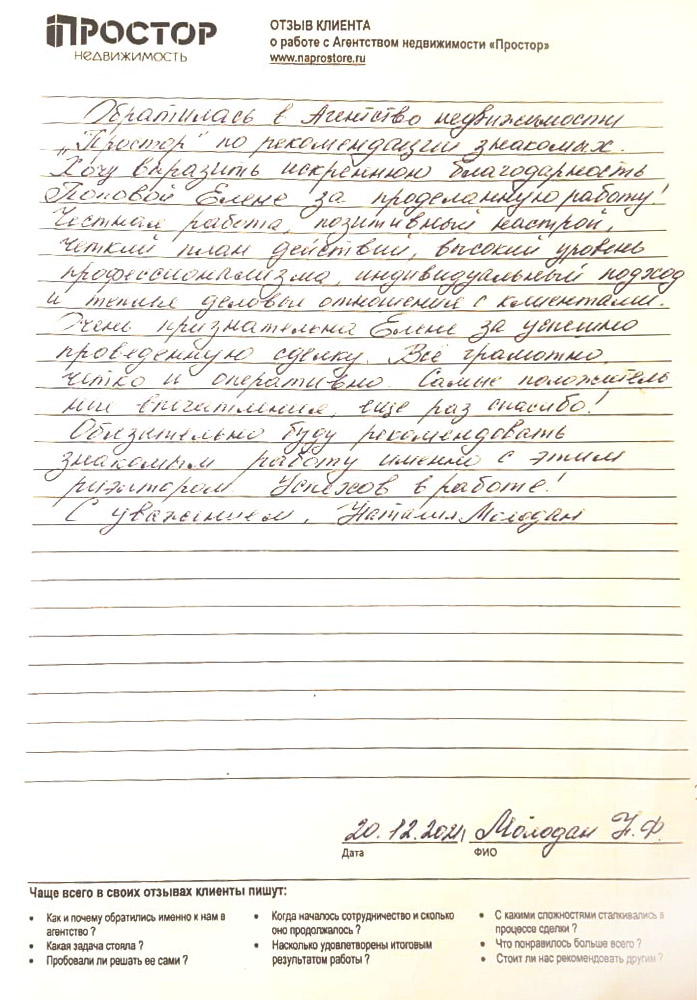 ПРОСТОР
НЕДВИЖИМОСТЬ
ОТЗЫВ КЛИЕНТА
о работе с Агентством недвижимости «Простор»
www.naprostore.ru
Обратилась в Агентство недвижимости
„Простор" по рекомендации знакомых.
Хочу выразить искреннюю благодарность
Поповой Елене за проделанную работу!
Честная работа, позитивный настрой,
четкий план действий, высокий уровень
профессионализма, индивидуальный подход
и теплые деловые отношения с клиентами.
Очень признательна Елене за успешно
проведенную сделку. Всё грамотно,
четко и оперативно. Самые положитель
ные впечатления, еще раз спасибо!
Обязательно буду рекомендовать
знакомым работу именно с этим
риэлтором. Успехов в работе!
С уважением, Наталия Молодан
20.12.2021, Молодан Н.Ф.
Дата ФИО
Чаще всего в своих отзывах клиенты пишут:
• Как и почему обратились именно к нам в
агентство ?
• Какая задача стояла ?
• Пробовали ли решать ее сами ?
• Когда началось сотрудничество и сколько
оно продолжалось ?
• Насколько удовлетворены итоговым
результатом работы ?
• С какими сложностями сталкивались в
процессе сделки ?
• Что понравилось больше всего ?
• Стоит ли нас рекомендовать другим ?